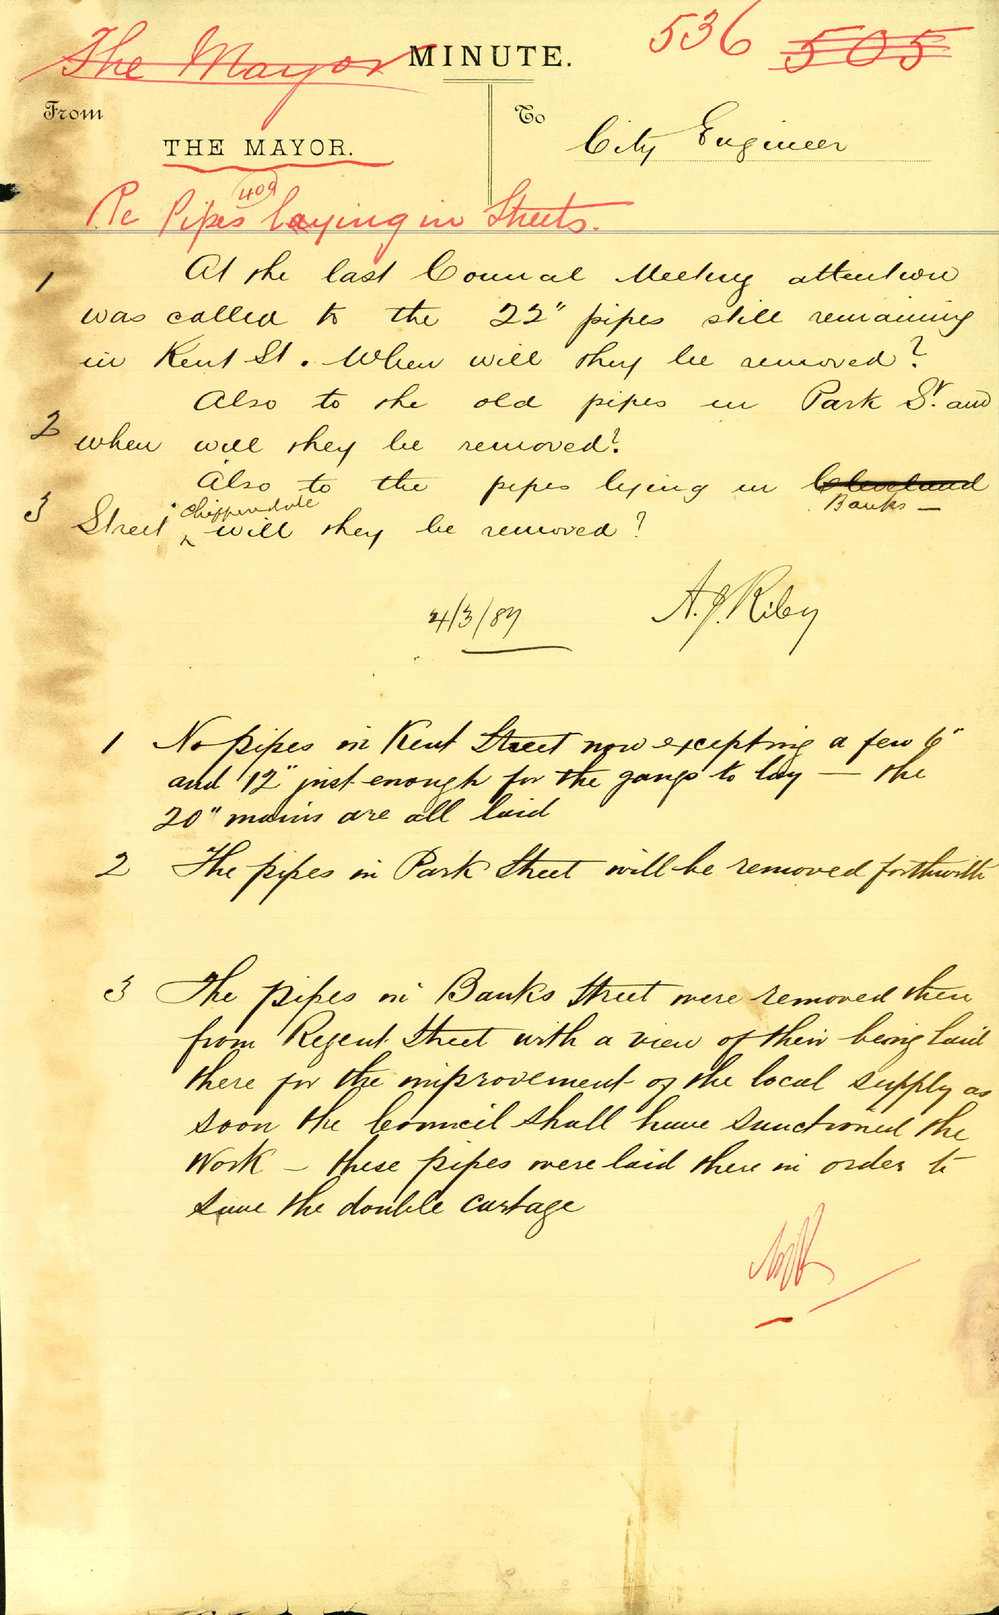 The Mayor MINUTE. 536 505
From To
THE MAYOR. City Engineer
409
Re Pipes laying in Streets.
1 At the last Council Meeting attention
was called to the 22" pipes still remaining
in Kent St. When will they be removed?
Also to the old pipes in Park St. and
2 when will they be removed?
Also to the pipes lying in Cleveland
Banks —
3 Street Chippendale will they be removed?
4/3/87 A.J. Riley
1 No pipes in Kent Street now excepting a few 6"
and 12" just enough for the gangs to lay — the
20" mains are all laid
2 The pipes in Park Street will be removed forthwith
3 The pipes in Banks Street were removed there
from Regent Street with a view of their being laid
there for the improvement of the local supply as
soon the Council shall have sanctioned the
work – these pipes were laid there in order to
save the double cartage